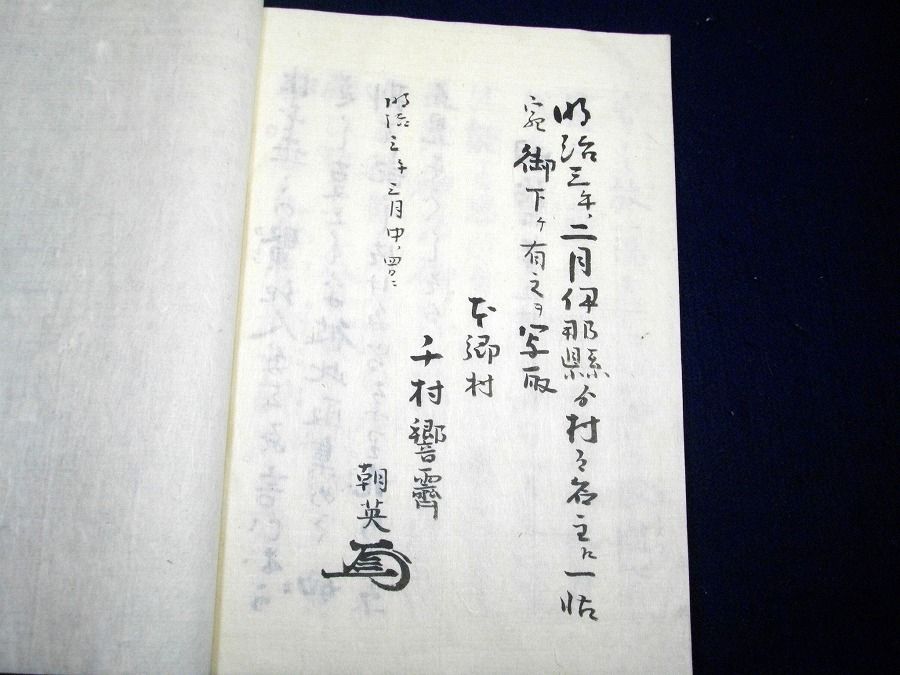 明治三年二月伊那縣ゟ村々名主ニ一帖
宛御下ケ有之ヲ写取
本郷村
千村響齋
朝英
明治三年三月中